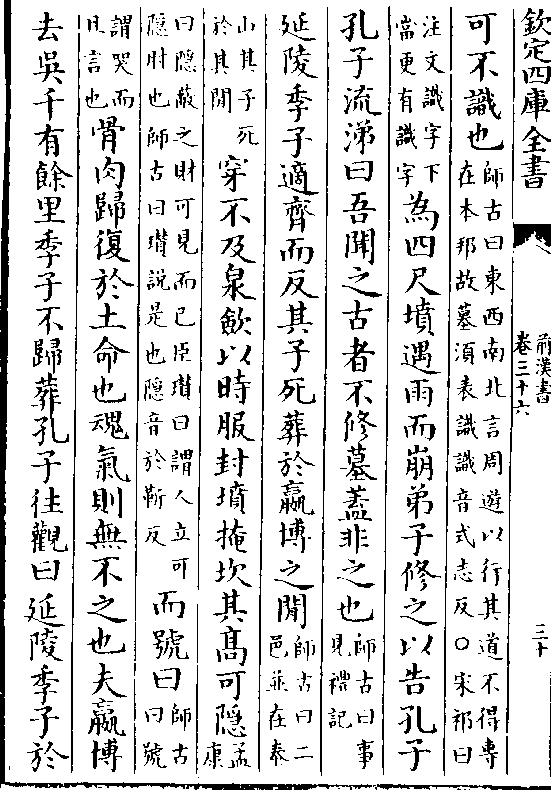 欽定四庫全書
前漢書
卷三十六
三十
可不識也師古曰東西南北言周遊以行其道不得專
在本邦故墓須表識識音式志反○宋祁曰
注文識字下
當更有識字為四尺墳遇雨而崩弟子修之以告孔子
孔子流涕曰吾聞之古者不修墓蓋非之也師古曰事
見禮記
延陵季子適齊而反其子死葬於嬴博之閒師古曰二
邑並在泰
山其子死
於其閒穿不及泉斂以時服封墳掩坎其高可隱孟
康
曰隱蔽之財可見而已臣瓚曰謂人立可
隱肘也師古曰瓚說是也隱音於靳反而號曰師古
曰號
謂哭而
且言也骨肉歸復於土命也魂氣則無不之也夫嬴博
去吳千有餘里季子不歸葬孔子往觀曰延陵季子於